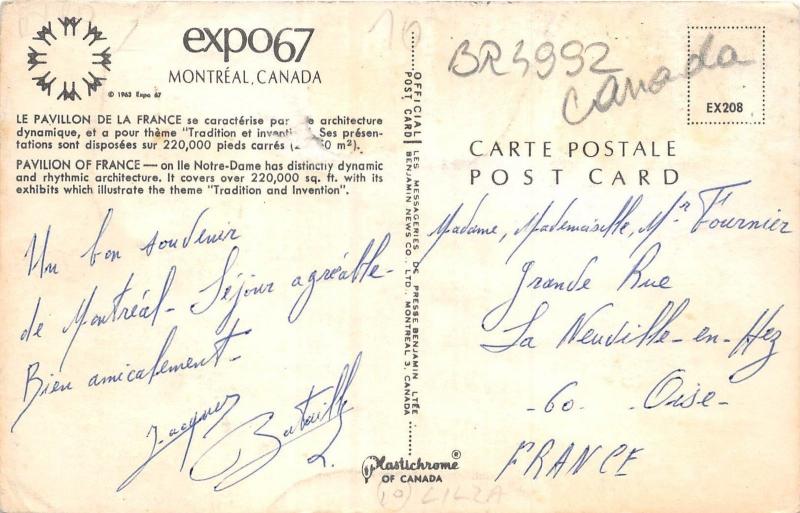 expo67
MONTRÉAL, CANADA
© 1963 Expo 67
LE PAVILLON DE LA FRANCE se caractérise par architecture
dynamique, et a pour thème "Tradition et invention". Ses présen-
tations sont disposées sur 220,000 pieds carrés ( m²).
PAVILION OF FRANCE — on Ile Notre-Dame has distinctly dynamic
and rhythmic architecture. It covers over 220,000 sq. ft. with its
exhibits which illustrate the theme "Tradition and Invention".
Un bon souvenir
de Montréal - Séjour agréable -
Bien amicalement -
Jacques
Bataille
OFFICIAL POST CARD
LES MESSAGERIES DE PRESSE BENJAMIN LTÉE
BENJAMIN NEWS CO., LTD., MONTREAL 3, CANADA
Plastichrome®
OF CANADA
10
BR3992
Canada
EX208
CARTE POSTALE
POST CARD
Madame, Mademoiselle, Mr Fournier
Grande Rue
La Neuville-en-Hez
- 60 - Oise -
FRANCE